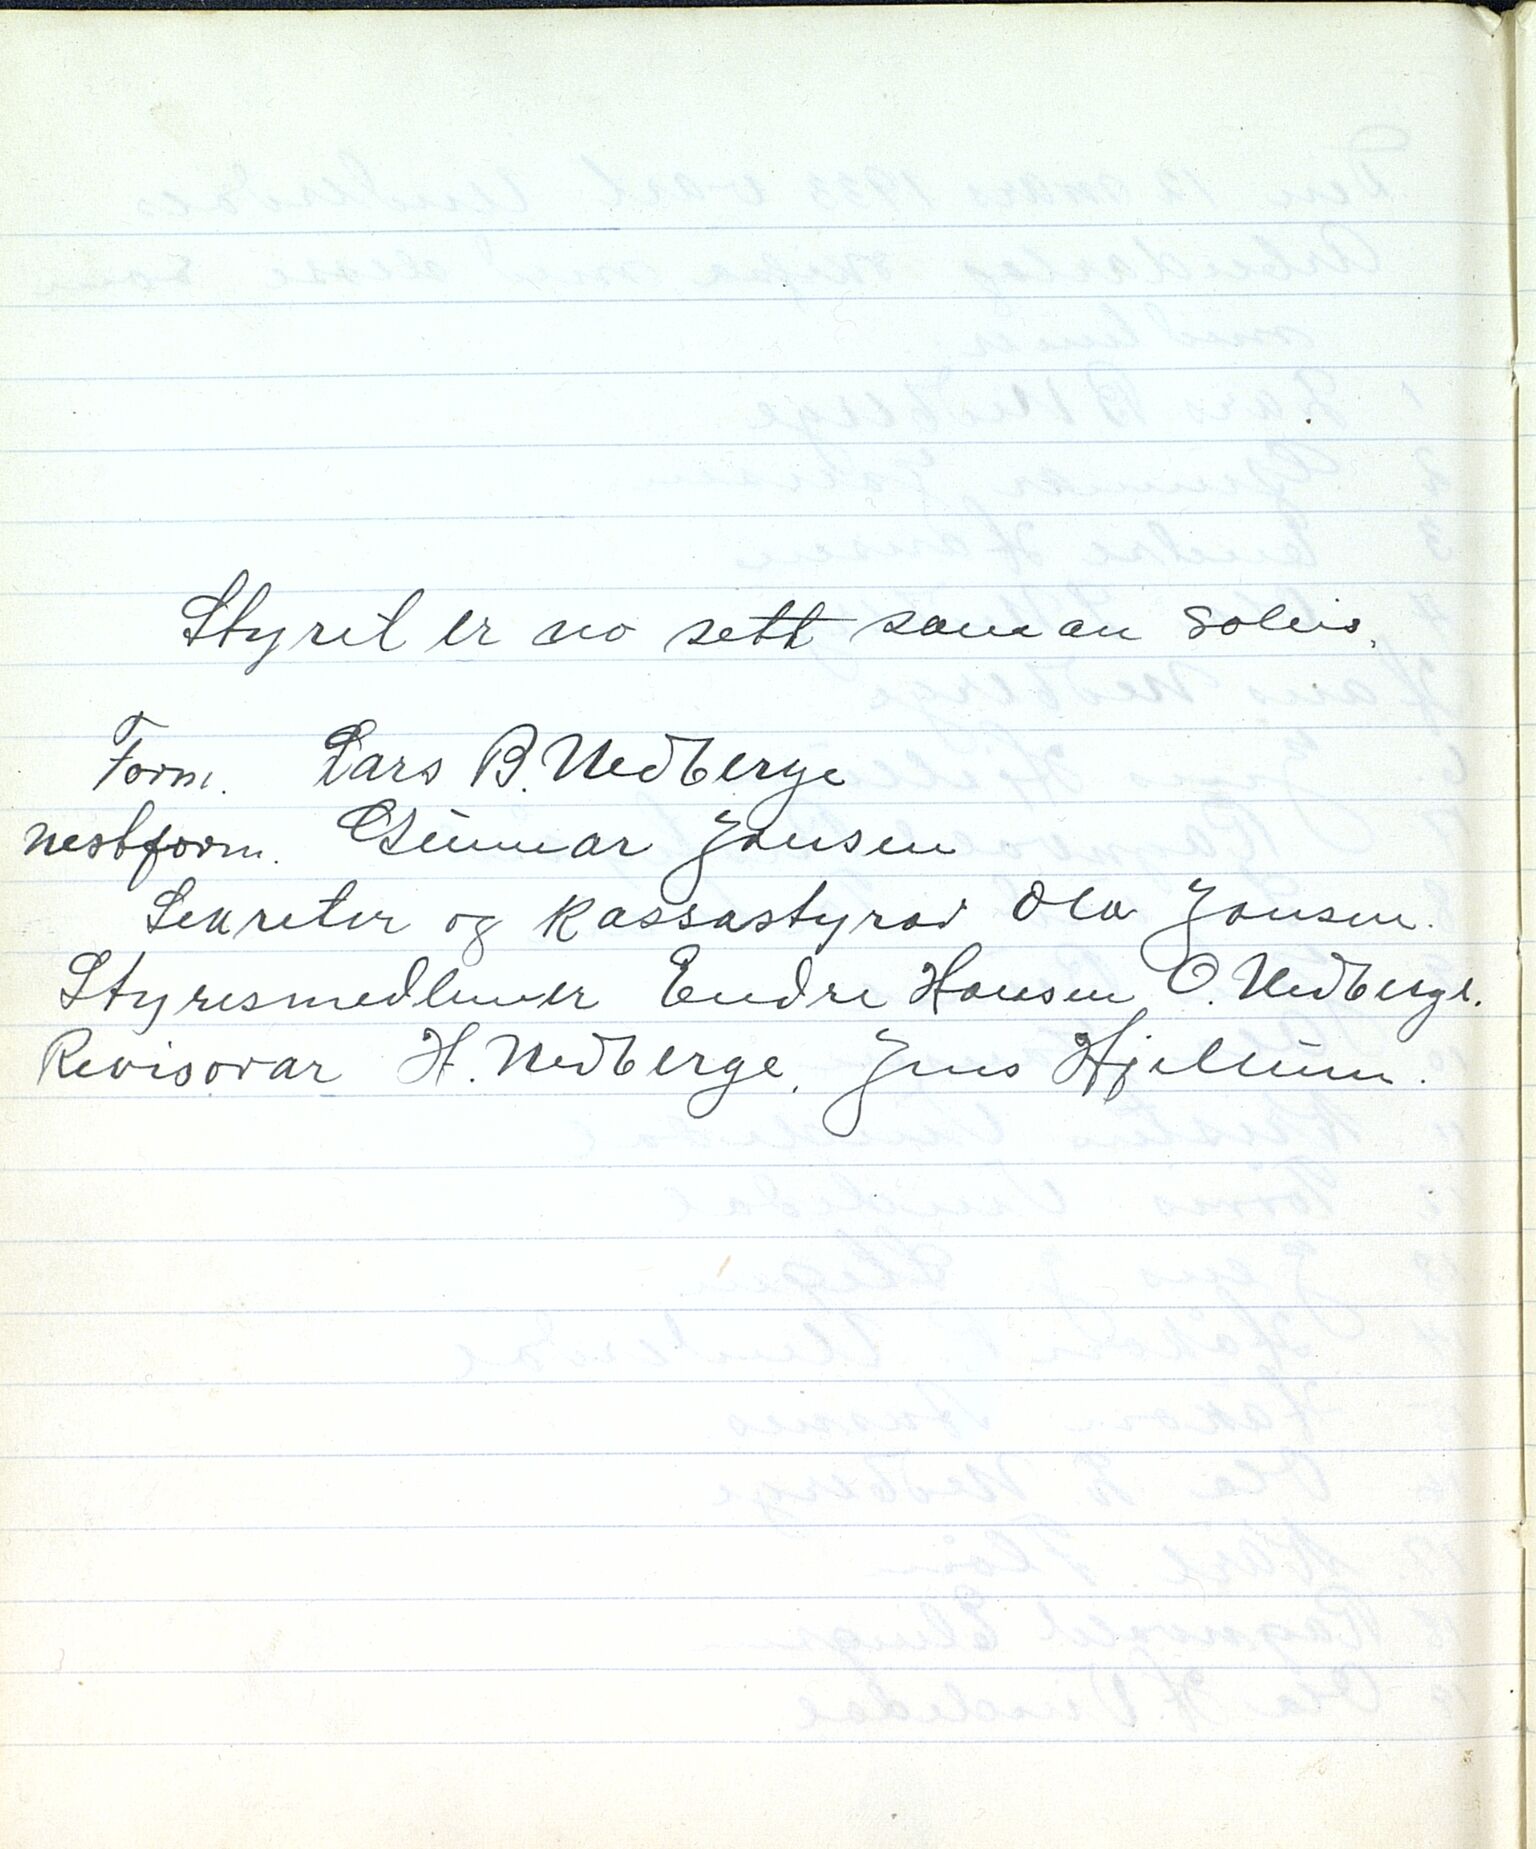 Styret er no sett saman soleis.
Form. Lars B. Nedberge
Nestform. Gunnar Jansen
Sekreter og Kassastyrar Ola Jansen.
Styresmedlemer Endre Hansen, O. Nedberge.
Revisorar H. Nedberge, Jens Hjellum.